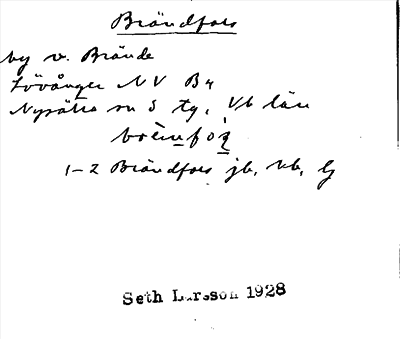 Brändfors
by v. Brände
Lövånger NV B4
Nysätra sn S tg, Vb län
1-2 Brändfors jb, kb, lj
Seth Larsson 1928